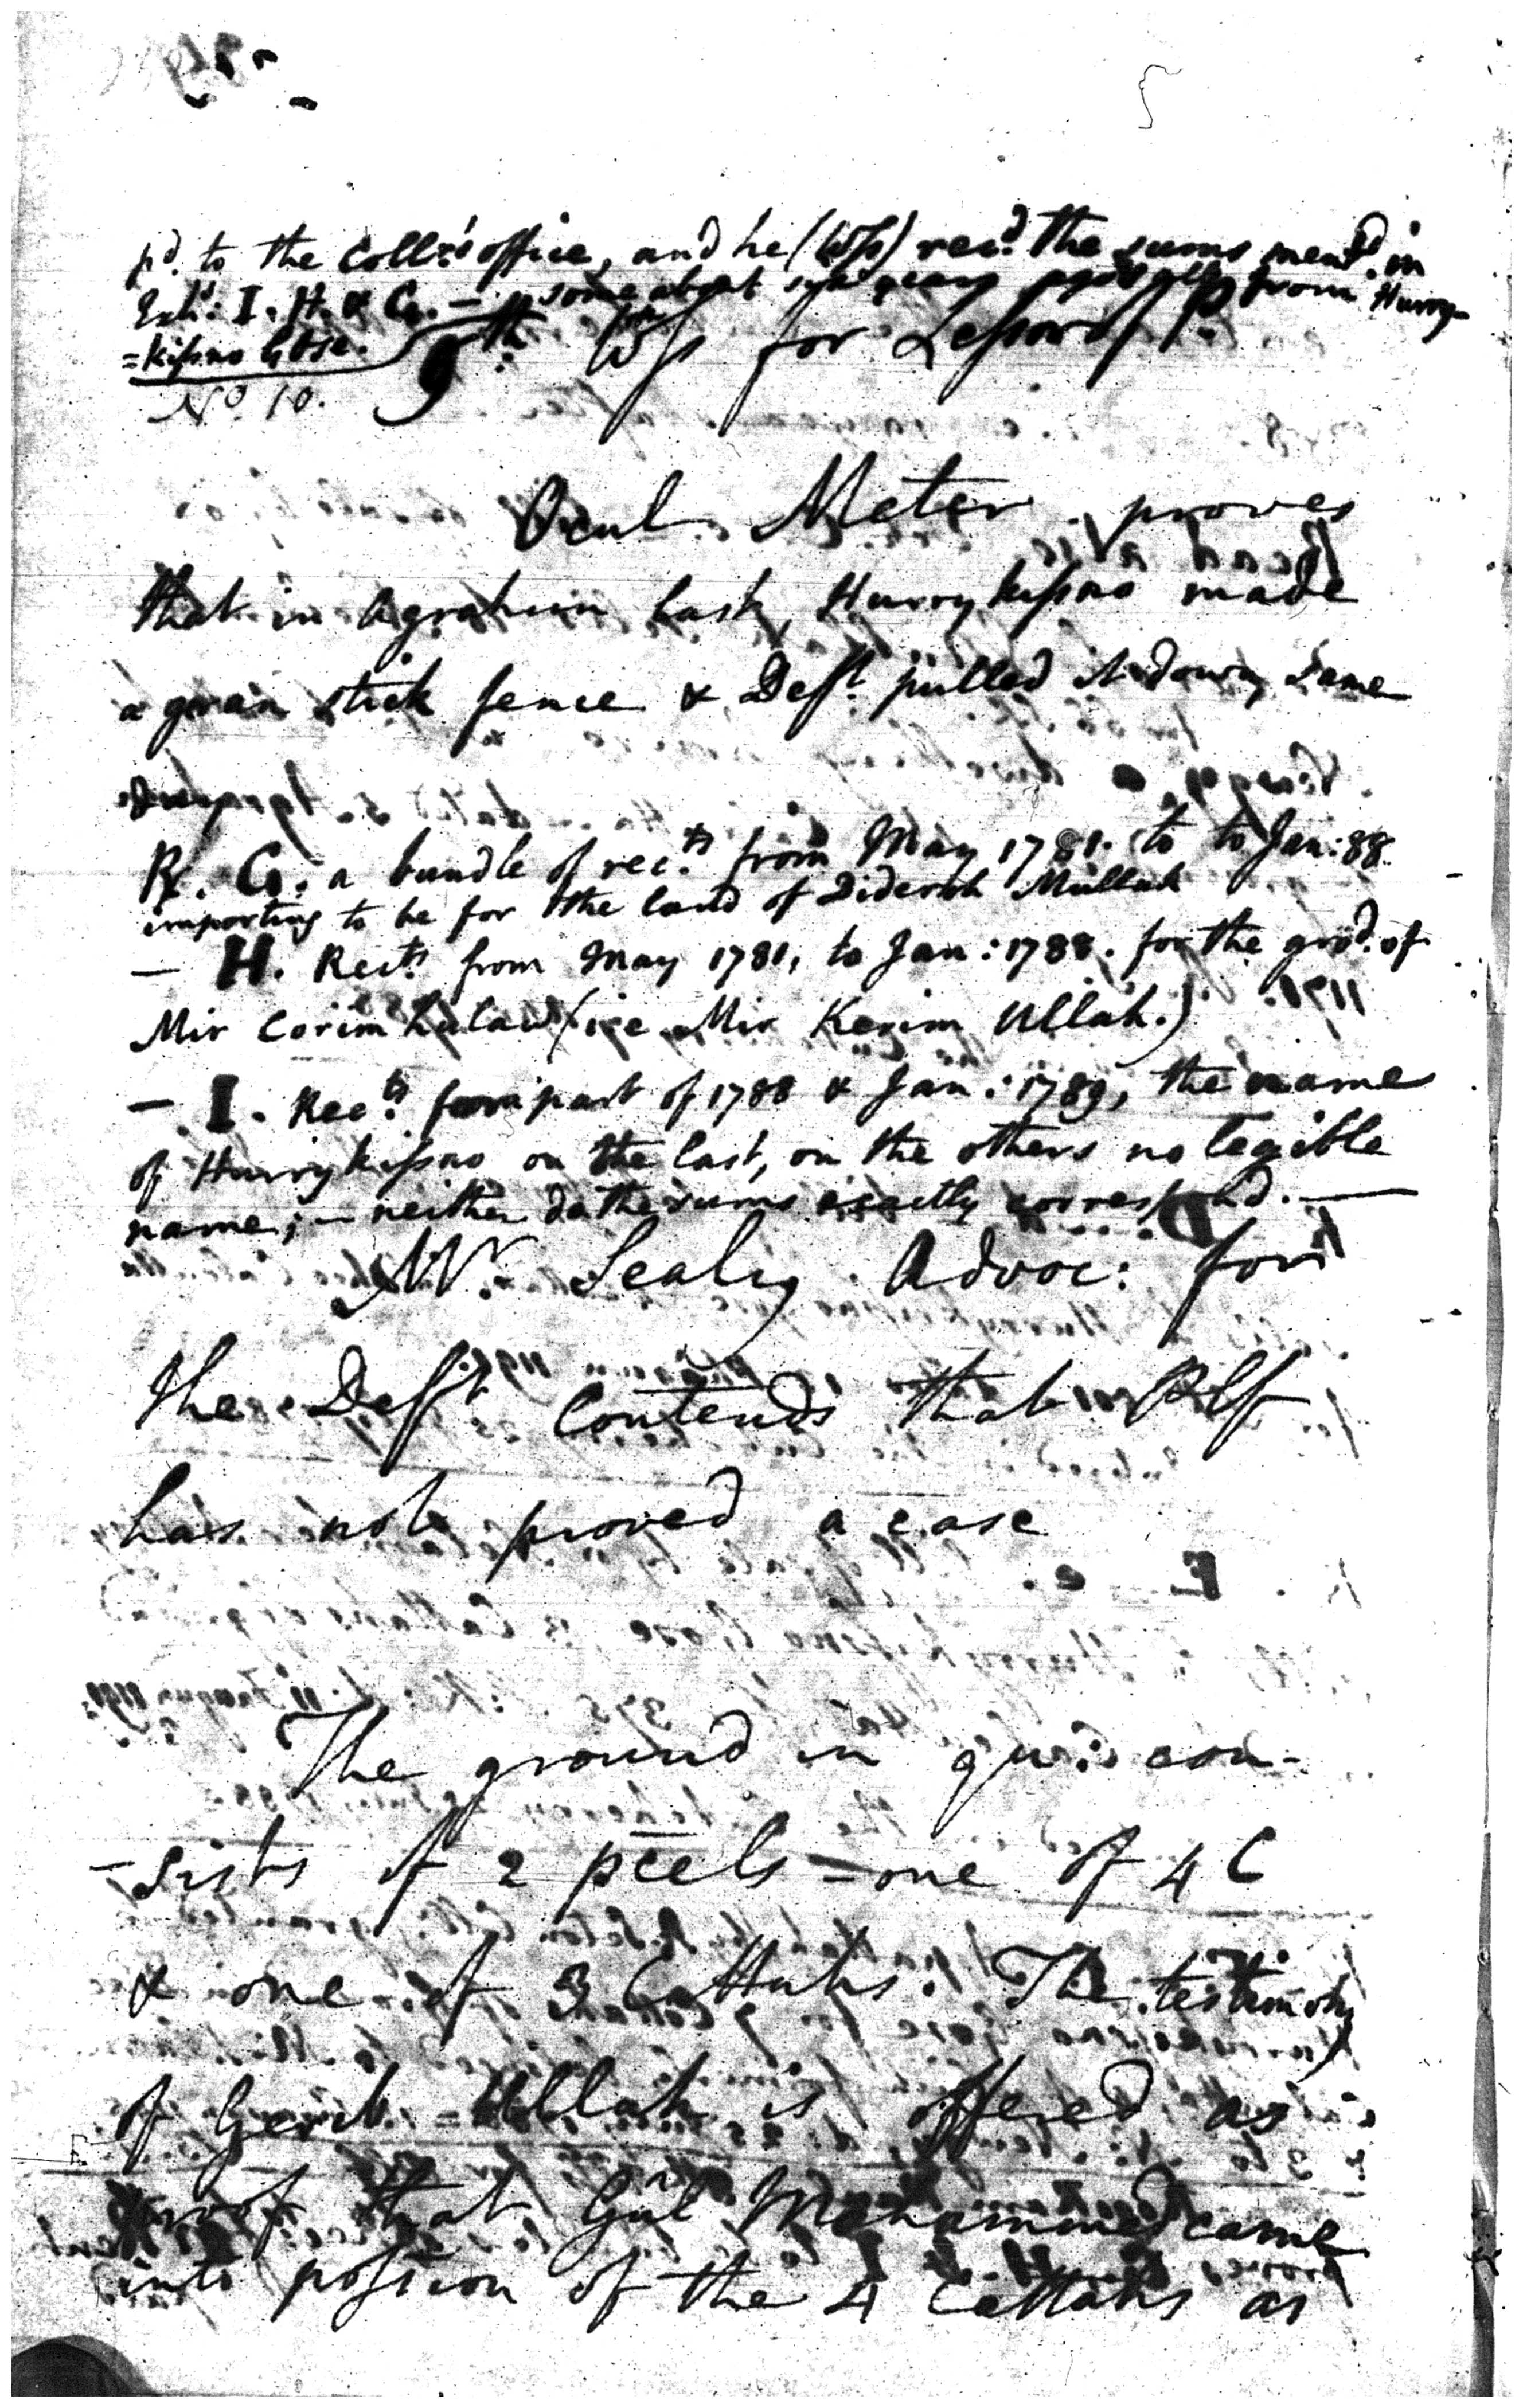 pd. to the Collrs office, and he (Wss) recd. the sums mentd. in
Exhs: I. H. & G. — some about years from Hurry-
=kissno Gose. 9th. Wss for Lessor of P.
No. 10.
Ocul Meter proves
that in Agrahun last, Hurrykissno made
a gran stick fence & Deft. pulled it down, same
R. G. a bundle of rects. from May 1781. to to Jan: 88.
importing to be for the land of Diderah Mullah
— H. Rects. from May 1781, to Jan: 1788. for the grod. of
Mir Corim Lulaw (i.e. Mir Kerim Ullah.)
— I. Rects. for part of 1788 & Jan: 1789, the name
of Hurrykissno on the last, on the others no legible
name; — neither do the sums exactly correspond. —
Mr. Sealy Advoc: for
the Deft Contends that Plf
has not proved a case
The ground in qu: con-
-sists of 2 pcels - one of 4 C
& one of 3 Cattahs. The testimony
of Gerib-Ullah is offered as
proof that Gul Mohammed came
into possion of the 4 Cattahs as